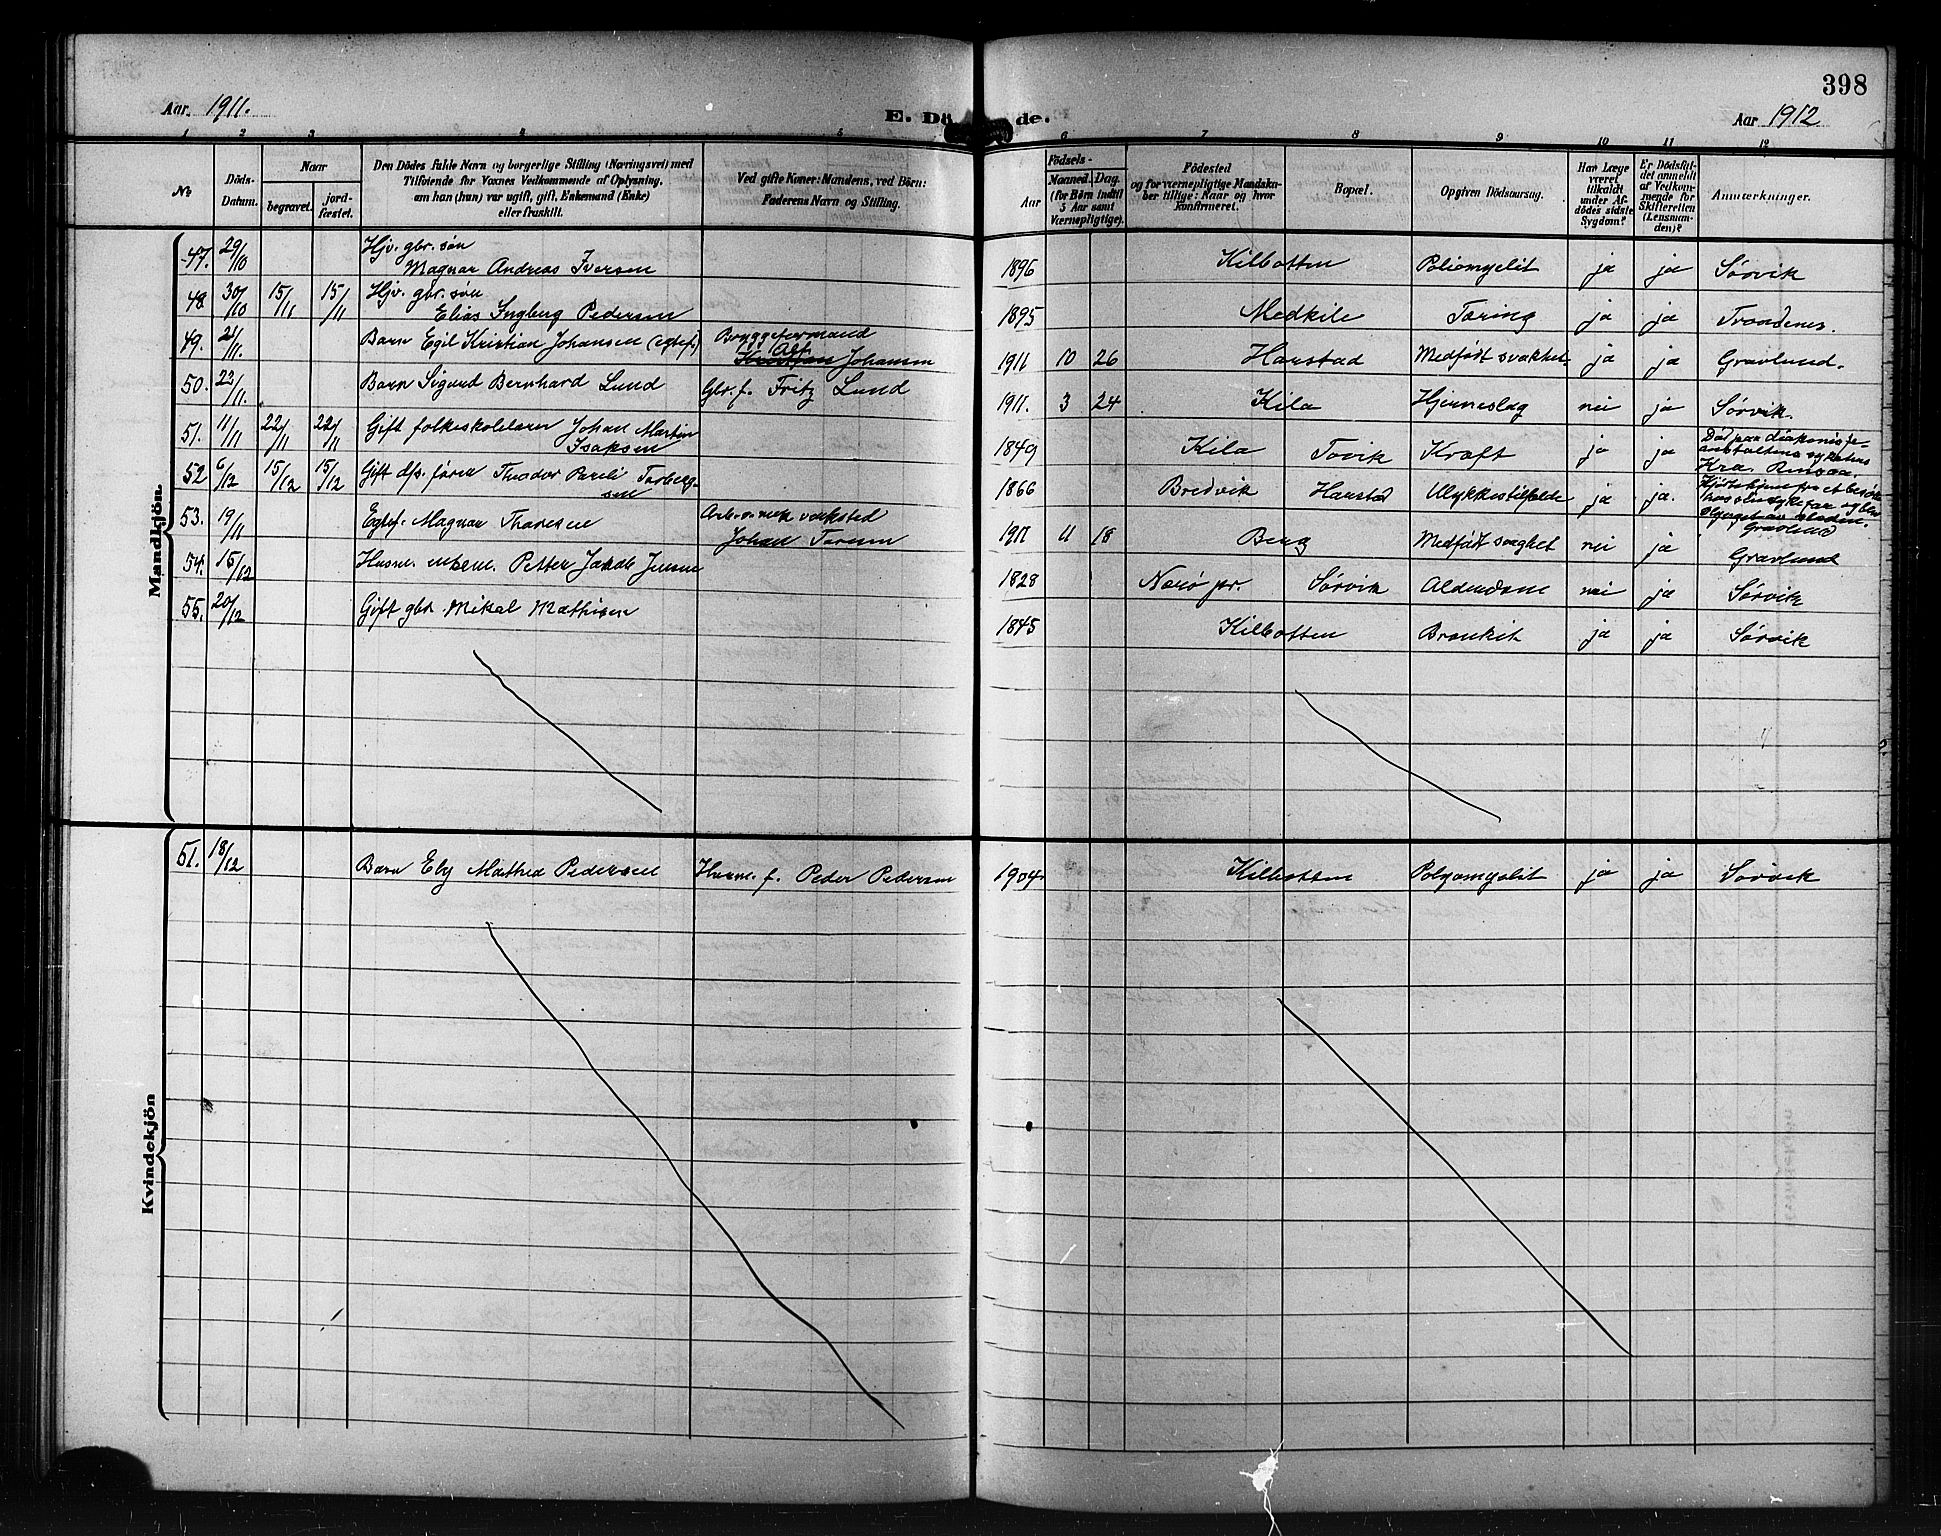 398
Aar. 1911.
E. Dö de.
Aar 1912
1 2 3 4 5 6 7 8 9 10 11 12
No
Döds-Datum.
Naar
begravet.
jord-fæstet.
Den Dödes fulde Navn og borgerlige Stilling (Næringsvei) med
Tilföiende for Voxnes Vedkommende af Oplysning,
om han (hun) var ugift, gift, Enkemand (Enke)
eller fraskilt.
Ved gifte Koner: Mandens, ved Börn:
Faderens Navn og Stilling.
Födsels-
Aar
Maaned. Dag.
(for Börn indtil
5 Aar samt
Værnepligtige).
Födested
og for værnepligtige Mandska-
ber tillige: Naar og hvor
konfirmeret.
Bopæl.
Opgiven Dödsaarsag.
Har Læge
været
tilkaldt
under Af-
dödes sidste
Sygdom?
Er Dödsfal-
det anmeldt
af Vedkom-
mende for
Skifteretten
(Lensman-
den)?
Anmærkninger.
Mandkjön.
47. 29/10 Hjv. gbr. søn
Magnar Andreas Iversen 1896 Kilbotten Poliomyelit ja ja Sørvik
48. 30/10 15/11 15/11 Hjv. gbr. søn
Elias Ingberg Pedersen 1895 Medkile Tæring ja ja Trondenes.
49. 21/11. Barn Egil Kristian Johansen (egtef.) Bryggeformand
Alf. Johansen 1911 10 26 Harstad Medfødt svakhet ja ja Gravlund.
50. 22/11. Barn Sigurd Bernhard Lund Gbr. f. Fritz Lund 1911. 3 24 Kila Hjerneslag nei ja Sørvik.
51. 11/11 22/11 22/11 Gift folkeskolelærer Johan Martin
Isaksen 1849 Kila Tovik Kræft ja ja Død paa diakonisse-
anstaltens sykehus
Kra.
52 6/12 15/12 15/12 Gift dfs. fører Theodor Pareli Torberg-
sen 1866 Bredvik Harstad Ulykkestilfælde ja ja.
53. 19/11 Egtef. Magnar Thoresen Arb. v. mek verksted
Johan Toresen 1911 11 18 Berg Medfødt svaghet nei ja Gravlund
Gravlund
54. 15/12 Husm. enkem. Petter Jakob Jensen 1828 Nærø pr. Sørvik Alderdom nei ja Sørvik
55. 20/12 Gift gbr. Mikal Mathisen 1845 Kilbotten Bronkit ja ja Sørvik
Kvindekjön
51. 18/12 Barn Ely Mathea Pedersen Husm. f. Peder Pedersen 1904. Kilbotten Polyomyelit ja ja Sørvik